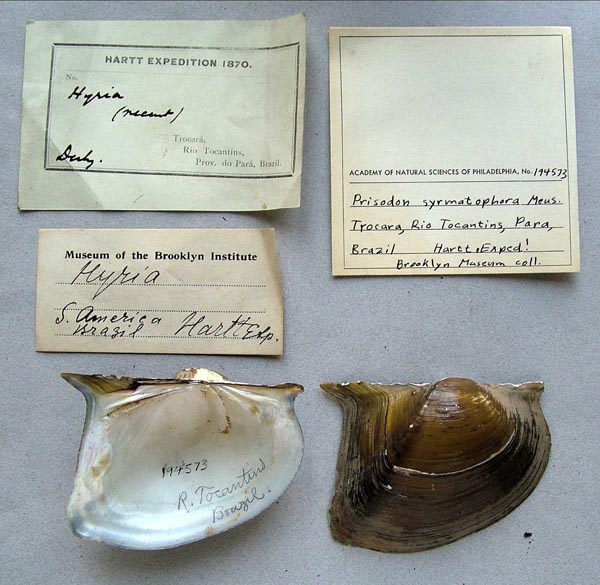 HARTT EXPEDITION 1870.
No.
Hyria
(recent)
Trocará,
Rio Tocantins,
Derby.
Prov. do Pará, Brazil.
ACADEMY OF NATURAL SCIENCES OF PHILADELPHIA, No. 194573
Prisodon syrmatophora Meus.
Trocara, Rio Tocantins, Para,
Brazil Hartt Exped!
Brooklyn Museum coll.
Museum of the Brooklyn Institute
Hyria
S. America
Brazil Hartt Exp.
194573
R. Tocantins
Brazil.